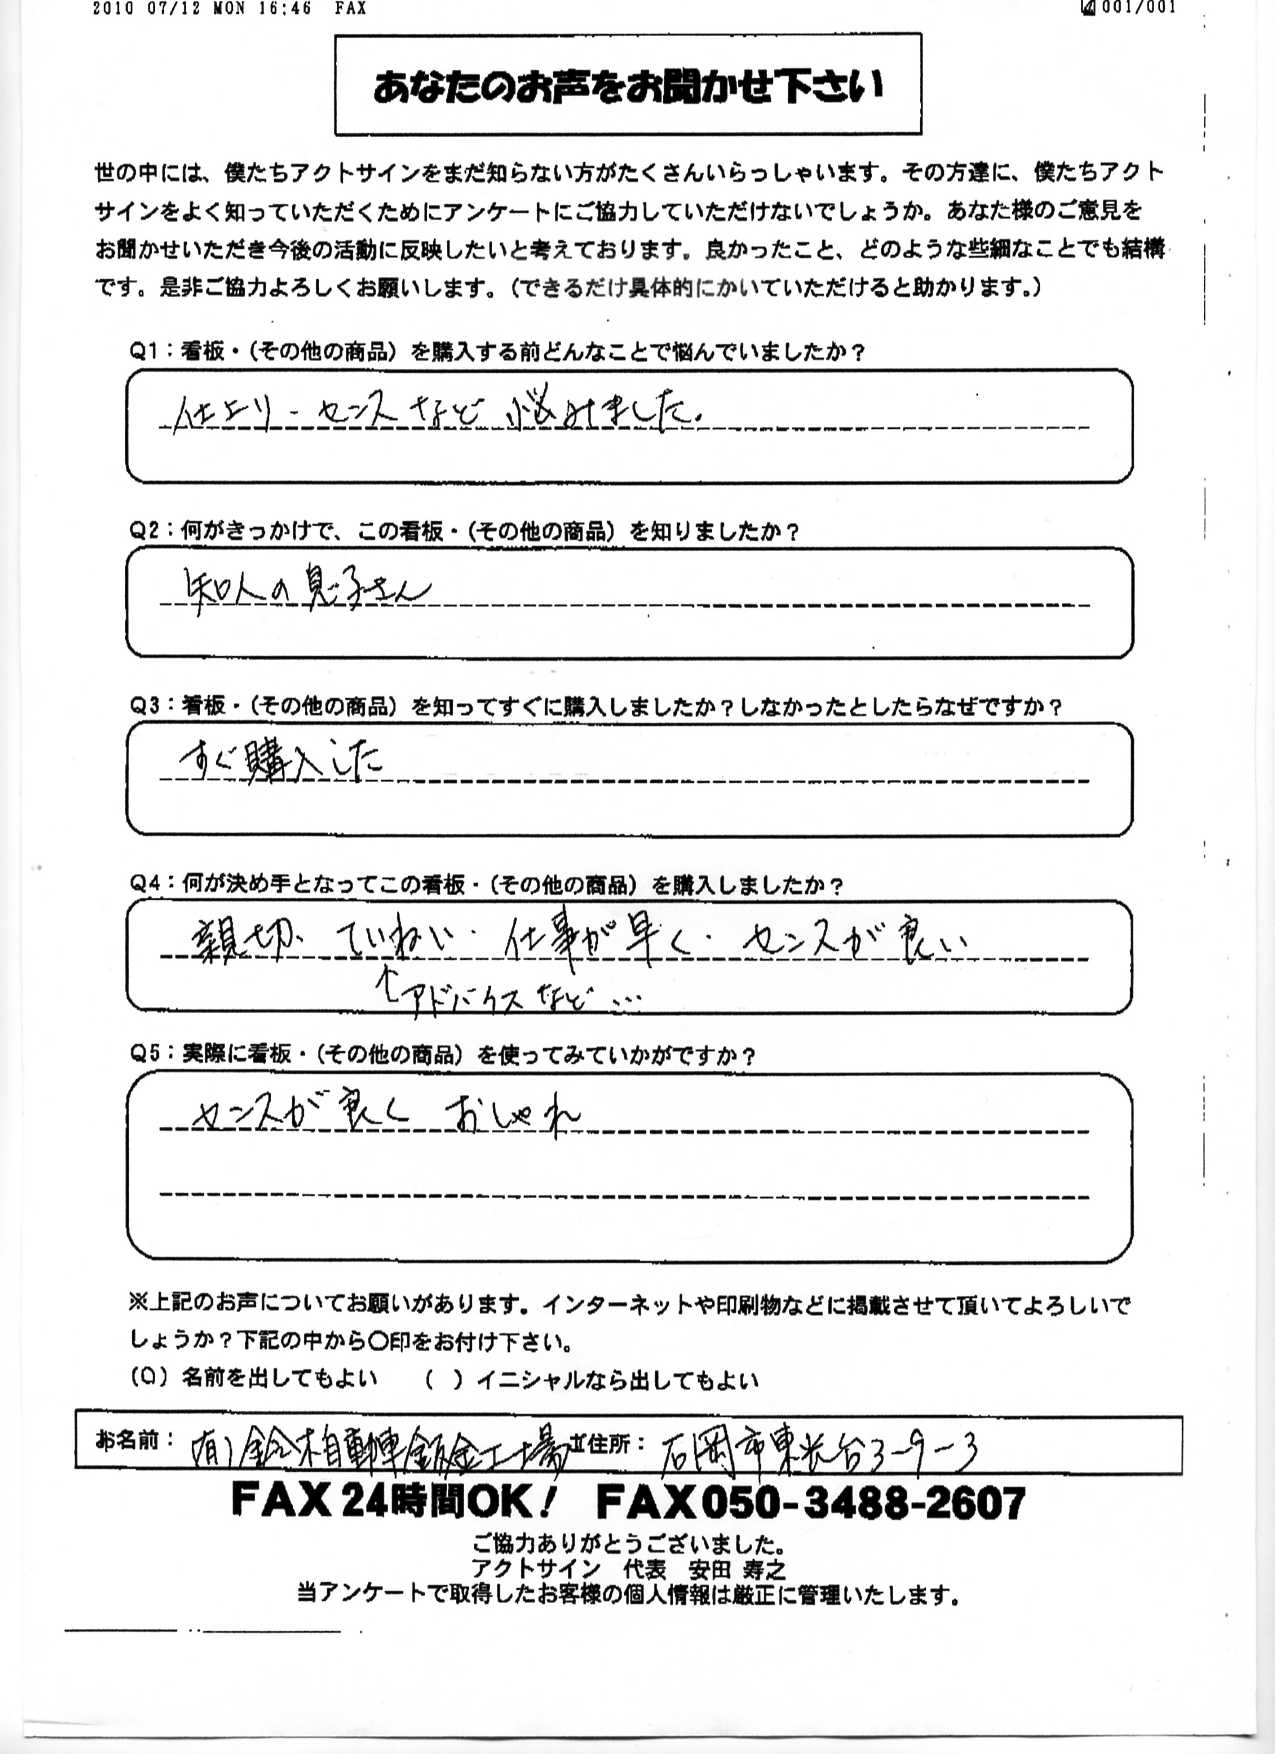 2010 07/12 MON 16:46 FAX 001/001
あなたのお声をお聞かせ下さい
世の中には、僕たちアクトサインをまだ知らない方がたくさんいらっしゃいます。その方達に、僕たちアクト
サインをよく知っていただくためにアンケートにご協力していただけないでしょうか。あなた様のご意見を
お聞かせいただき今後の活動に反映したいと考えております。良かったこと、どのような些細なことでも結構
です。是非ご協力よろしくお願いします。(できるだけ具体的にかいていただけると助かります。)
Q1:看板・(その他の商品)を購入する前どんなことで悩んでいましたか?
仕上り-センスなど悩みました。
Q2:何がきっかけで、この看板・(その他の商品)を知りましたか?
知人の息子さん
Q3:看板・(その他の商品)を知ってすぐに購入しましたか?しなかったとしたらなぜですか?
すぐ購入した
Q4:何が決め手となってこの看板・(その他の商品)を購入しましたか?
親切、ていねい・仕事が早く・センスが良い
↑アドバイスなど…
Q5:実際に看板・(その他の商品)を使ってみていかがですか?
センスが良く おしゃれ
※上記のお声についてお願いがあります。インターネットや印刷物などに掲載させて頂いてよろしいで
しょうか?下記の中から〇印をお付け下さい。
(〇)名前を出してもよい ( )イニシャルなら出してもよい
お名前:有)鈴木自動車鈑金工場 ご住所:石岡市東光台3-9-3
FAX24時間OK! FAX050-3488-2607
ご協力ありがとうございました。
アクトサイン 代表 安田 寿之
当アンケートで取得したお客様の個人情報は厳正に管理いたします。